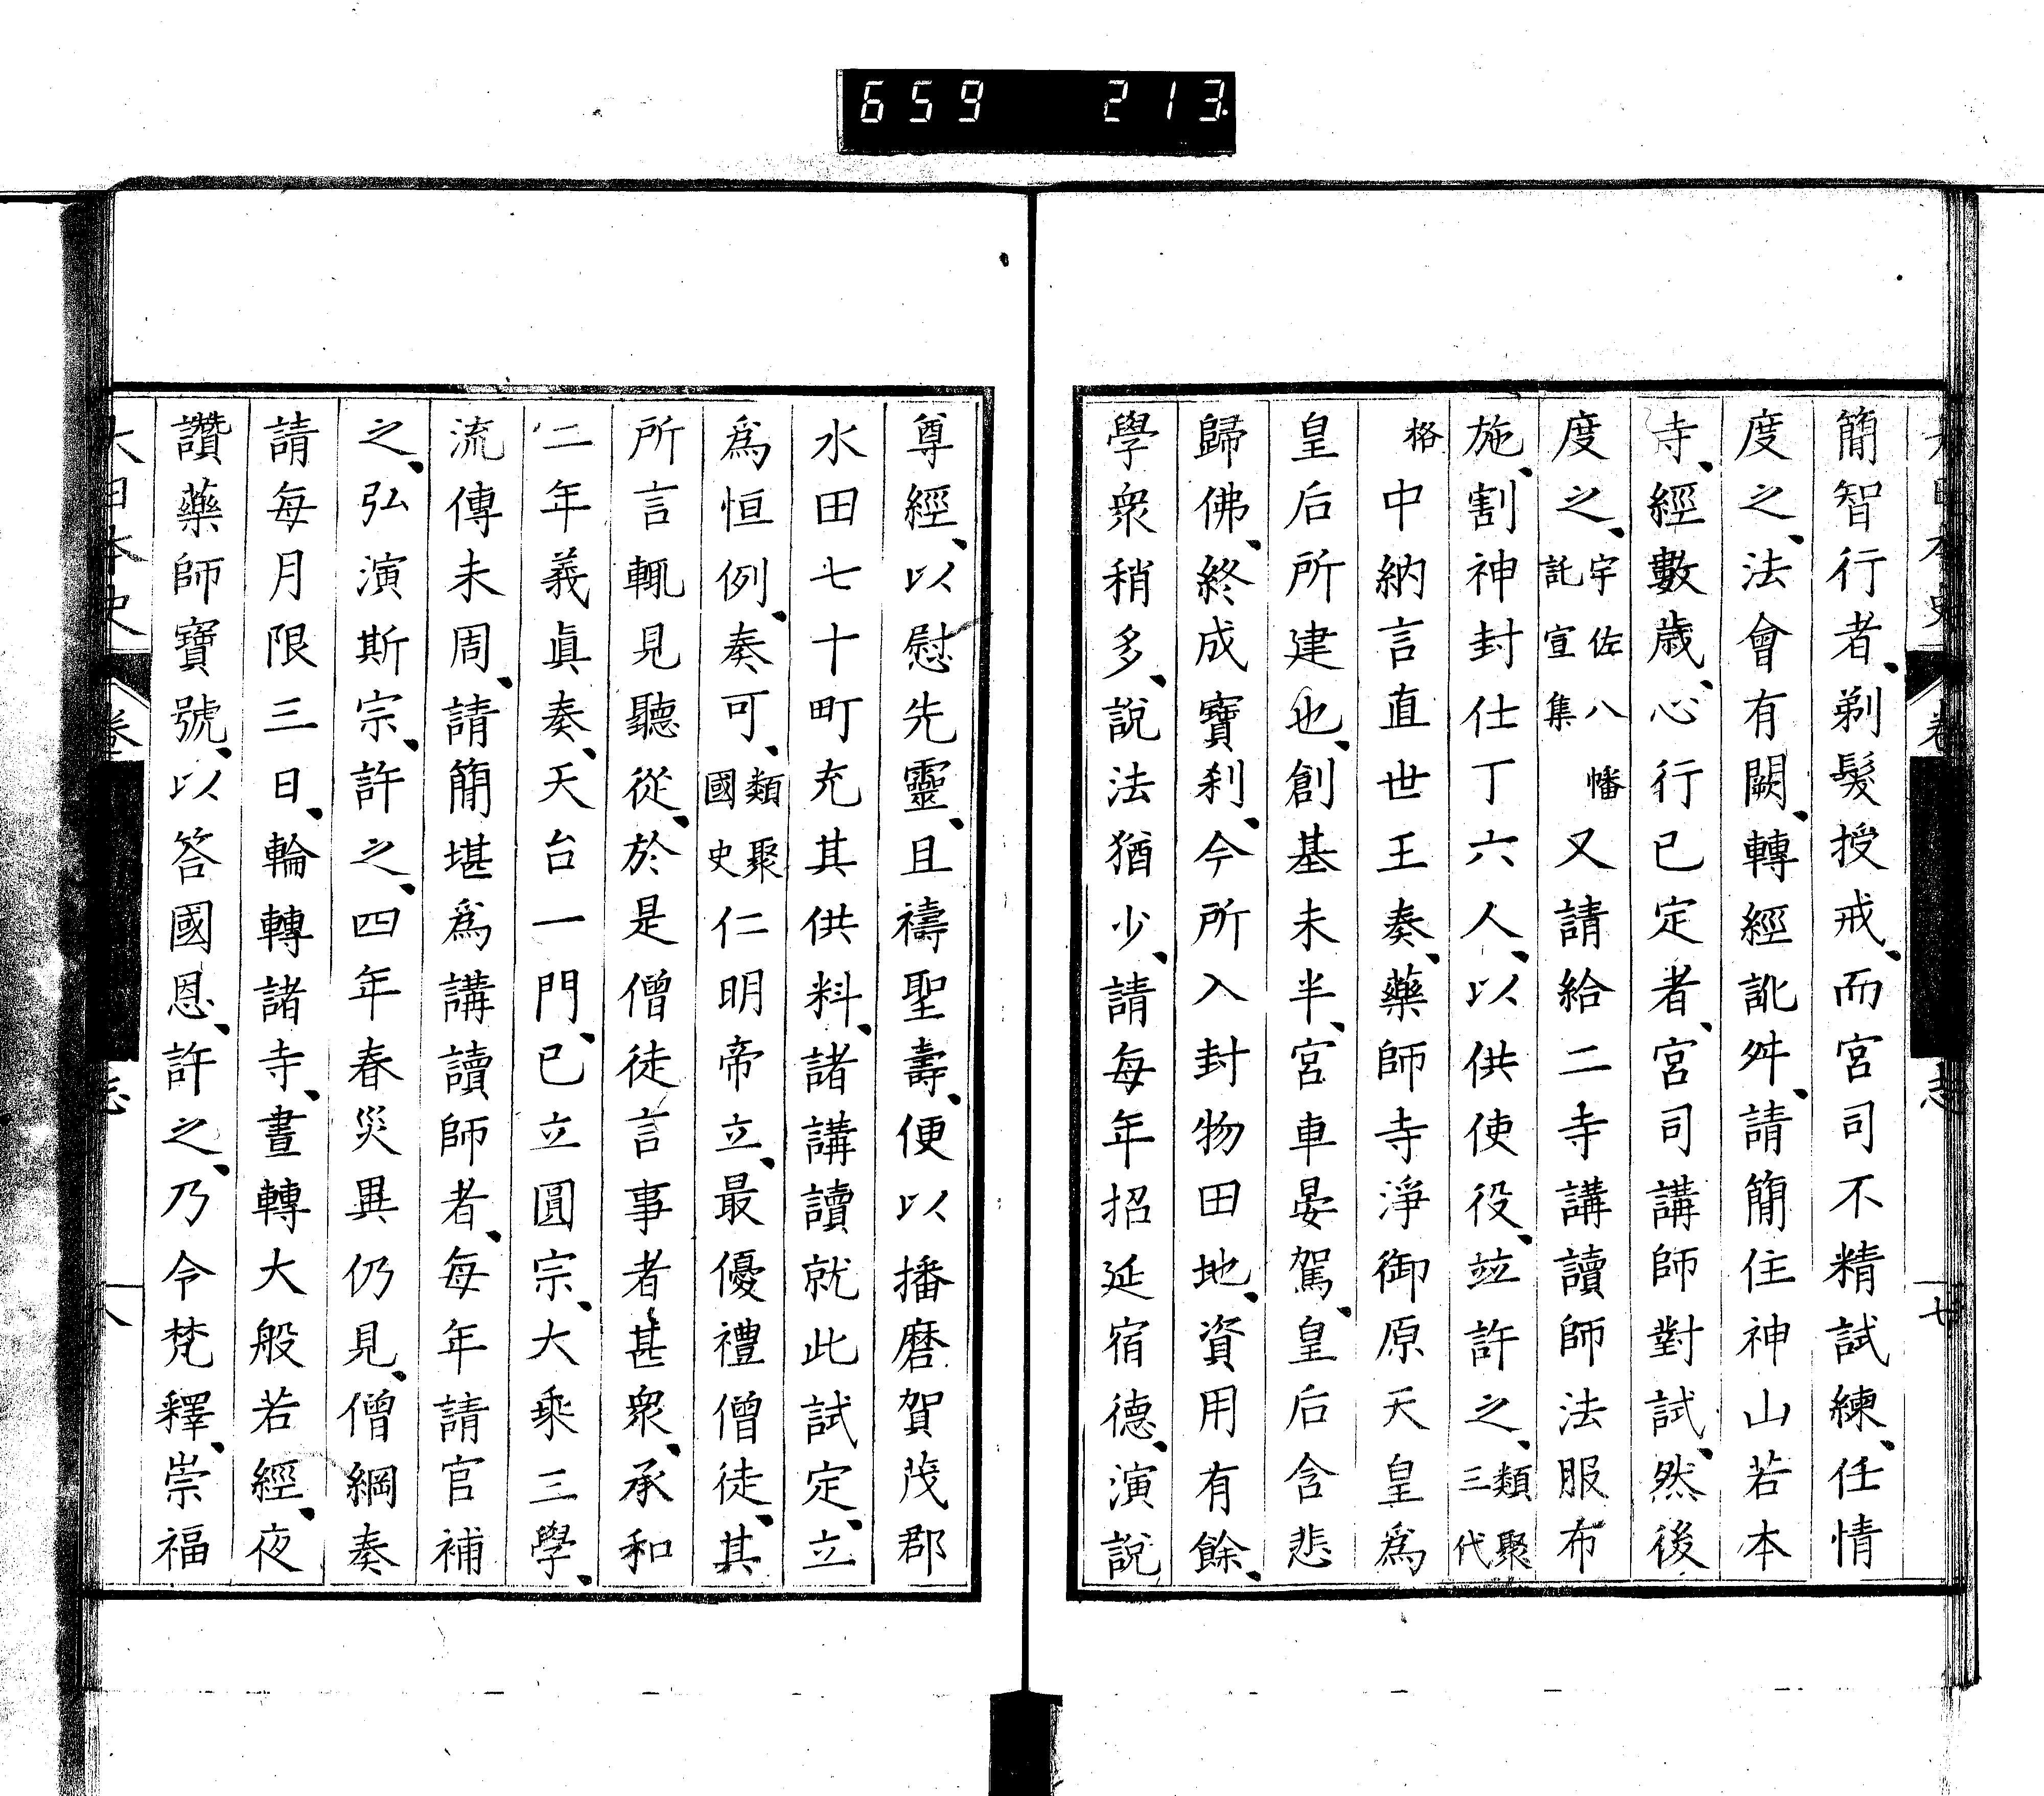 659 213
簡智行者、剃髮授戒、而宮司不精試練、任情
度之、法會有闕、轉經訛舛、請簡住神山若本
寺、經數歲、心行已定者、宮司講師對試、然後
度之、宇佐八幡託宣集又請給二寺講讀師法服布
施、割神封仕丁六人、以供使役、竝許之、類聚三代
格中納言直世王奏、藥師寺淨御原天皇爲
皇后所建也、創基未半、宮車晏駕、皇后含悲
歸佛、終成寶刹、今所入封物田地、資用有餘、
學衆稍多、說法猶少、請每年招延宿德、演說
尊經、以慰先靈、且禱聖壽、便以播磨賀茂郡
水田七十町充其供料、諸講讀就此試定、立
爲恒例、奏可、類聚國史仁明帝立、最優禮僧徒、其
所言輒見聽從、於是僧徒言事者甚衆、承和
二年義眞奏、天台一門、已立圓宗、大乘三學、
流傳未周、請簡堪爲講讀師者、每年請官補
之、弘演斯宗、許之、四年春災異仍見、僧綱奏
請每月限三日、輪轉諸寺、晝轉大般若經、夜
讚藥師寶號、以答國恩、許之、乃令梵釋、崇福
大日本史 卷 志 八